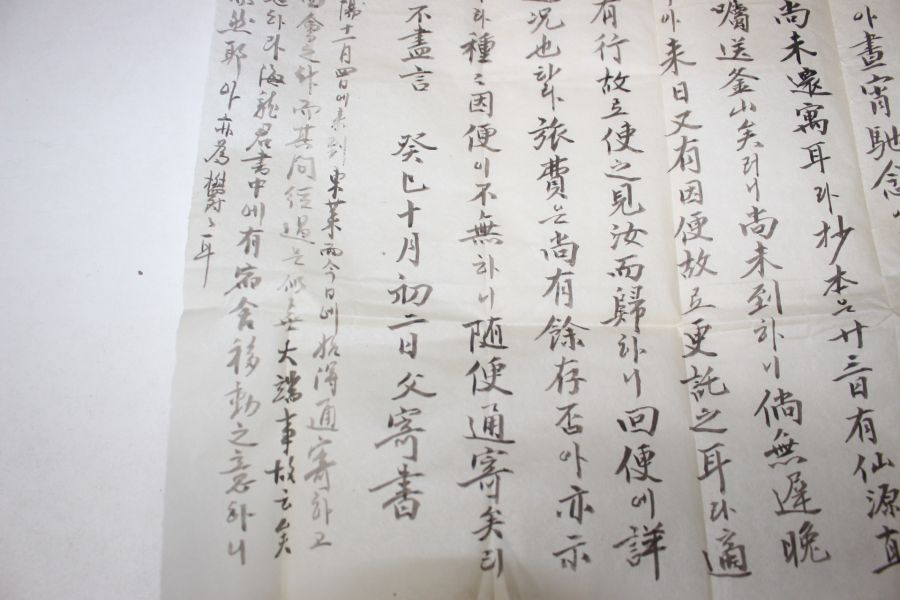 아晝宵馳念
尚未還寓耳라抄本은卄三日有仙源直
囑送釜山矣러니尚未到하니倘無遲晩
아来日又有因便故로更託之耳라適
有行故로使之見汝而歸하니回便에詳
况也라旅費은尚有餘存否아亦示
라種〻因便이不無하니随便通寄矣리
不盡言 癸巳十月初二日父寄書
陽十一月四日에来到東萊而今日에始得通寄하고
而其間經過은似無大端事故云矣
라海龍君書中에有宿舍移動之意하니
然耶아亦爲鬱〻耳